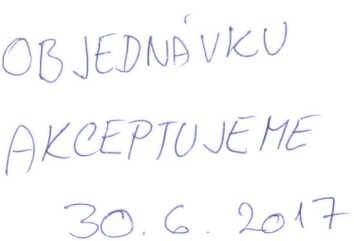 OBJEDNÁVKU
AKCEPTUJEME
30.6.2017